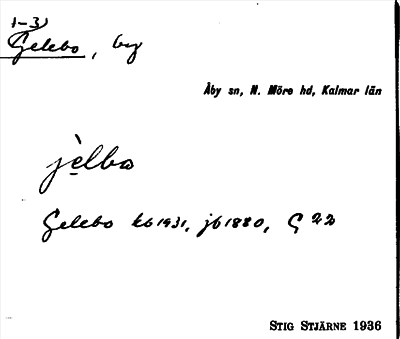 1-3
Gelebo, by
Åby sn, N. Möre hd, Kalmar län
jè̱lbo
Gelebo kb 1931, jb 1880, G 22
STIG STJÄRNE 1936